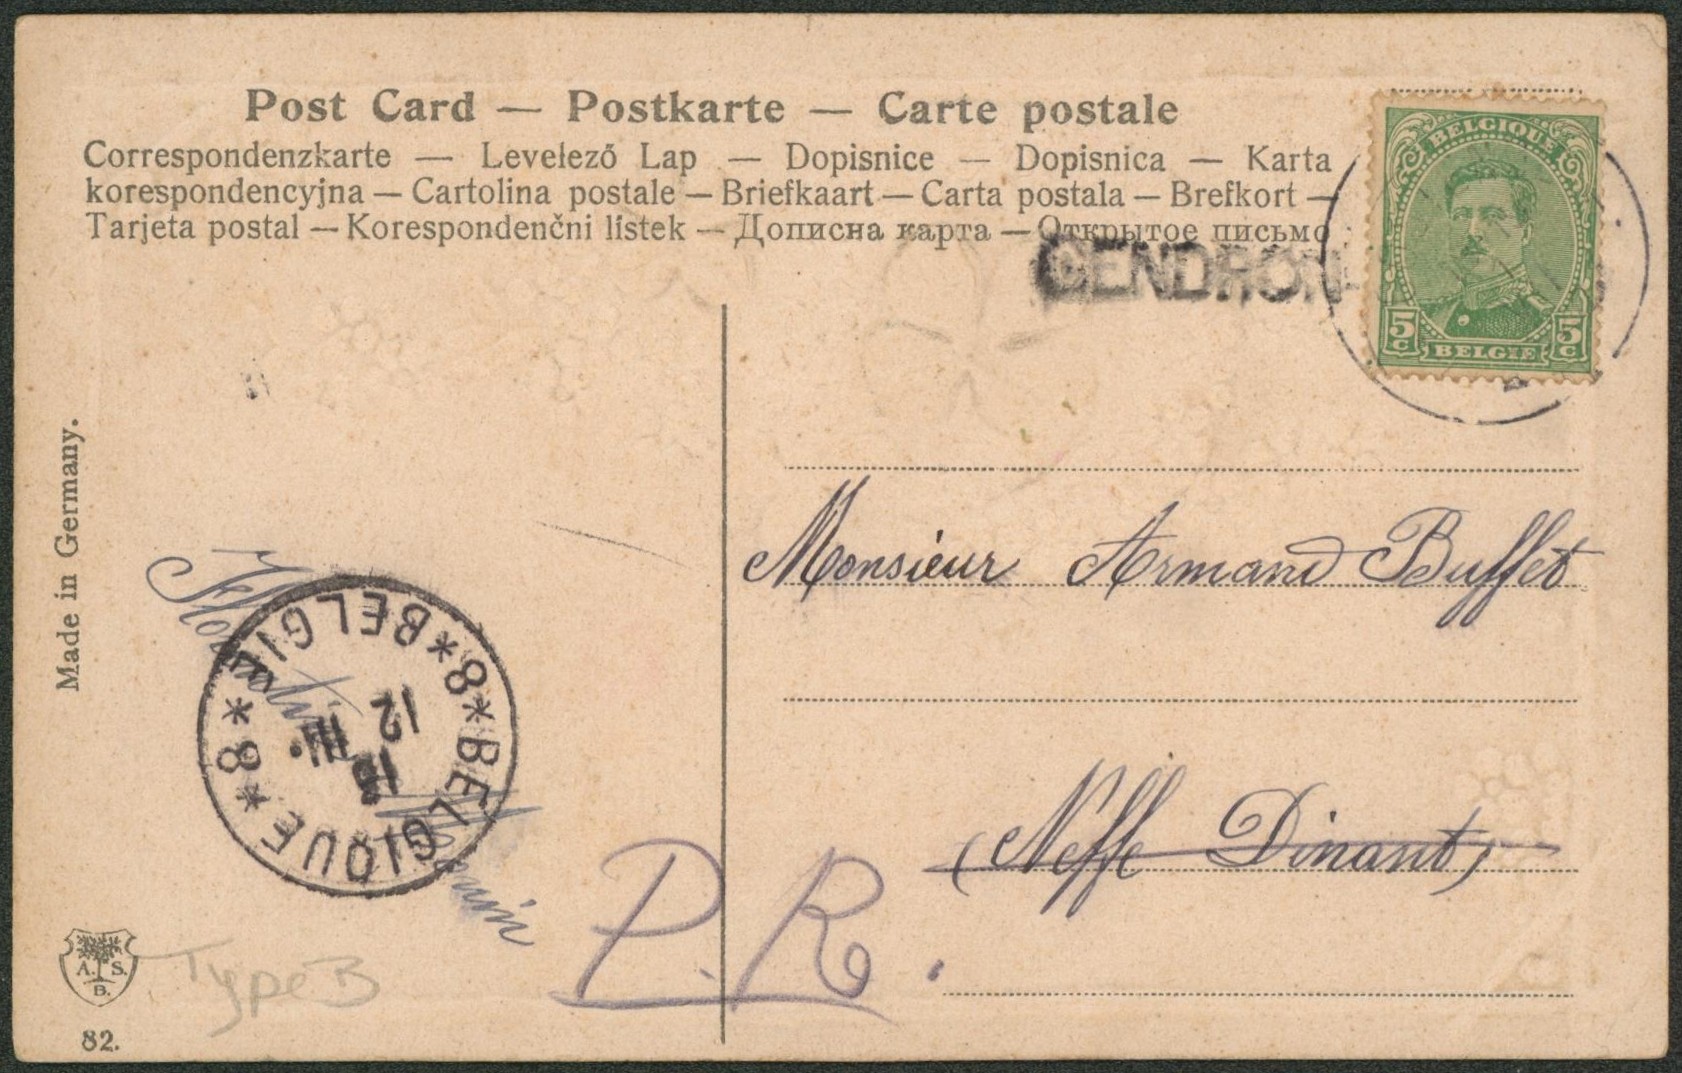 Post Card — Postkarte — Carte postale
Correspondenzkarte — Levelező Lap — Dopisnice — Dopisnica — Karta
korespondencyjna — Cartolina postale — Briefkaart — Carta postala — Brefkort —
Tarjeta postal — Korespondenčni lístek — Дописна карта — Открытое письмо
GENDRON
BELGIQUE
5 C 5 C
BELGIË
Made in Germany.
Monsieur Armand Buffet
(Neffe Dinant)
P. R.
*BELGIE*8*BELGIQUE*8*
12
III.
A. S.
B.
Type B
82.